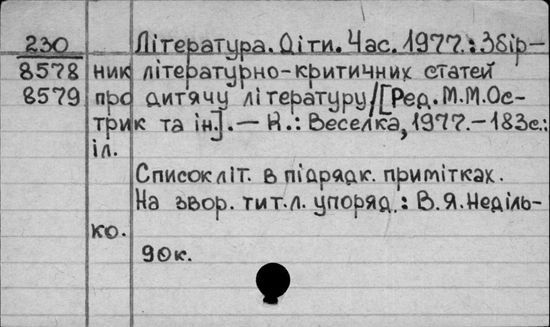 230 Література. Діти. Час. 1977.: Збір-
8578 ник літературно-критичних статей
8579 про дитячу літературу/[Ред. М.М.Ос-
трик та ін.]. — К.: Веселка, 1977. — 183с.:
іл.
Список літ. в підрядк. примітках.
На звор. тит.л. упоряд.: В.Я.Неділь-
ко.
90к.